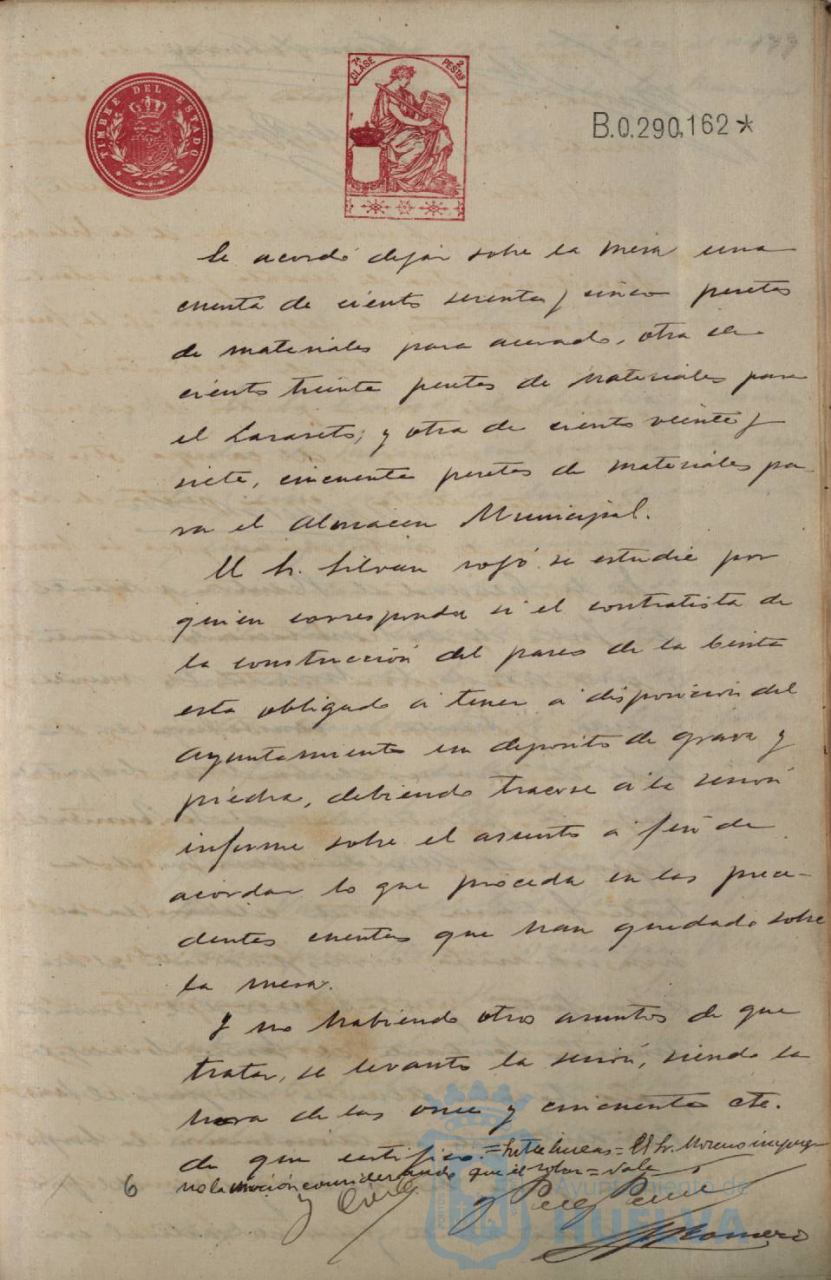 179
TIMBRE DEL ESTADO
7ª CLASE 2 PESTAS
B.0.290,162*
Se acordó dejar sobre la mesa una
cuenta de ciento setenta y cinco pesetas
de materiales para acerado, otra de
ciento treinta pesetas de materiales para
el Lazareto; y otra de ciento veinte y
siete, cincuenta pesetas de materiales pa-
ra el Almacen Municipal.
El Sr. Silvan rogó se estudie por
quien corresponda si el contratista de
la construcción del paseo de la Cinta
esta obligado á tener á disposición del
Ayuntamiento un deposito de grava y
piedra, debiendo traerse á la sesión
informe sobre el asunto á fin de
acordar lo que proceda en las prece-
dentes cuentas que han quedado sobre
la mesa.
Y no habiendo otros asuntos de que
tratar, se levanto la sesión, siendo la
hora de las once y cincuenta etc.
de que certifico.=Entre lineas=El Sr. Moreno impugnó
la moción considerando que el solar=Vale
6
Ayuntamiento de
HUELVA
Romero